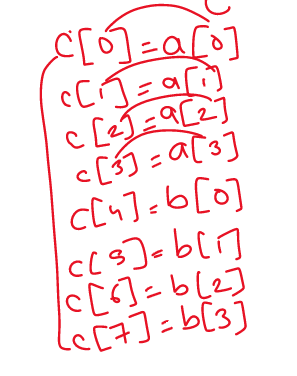 C[0]=a[0]
c[1]=a[1]
c[2]=a[2]
c[3]=a[3]
c[4]=b[0]
c[5]=b[1]
c[6]=b[2]
c[7]=b[3]